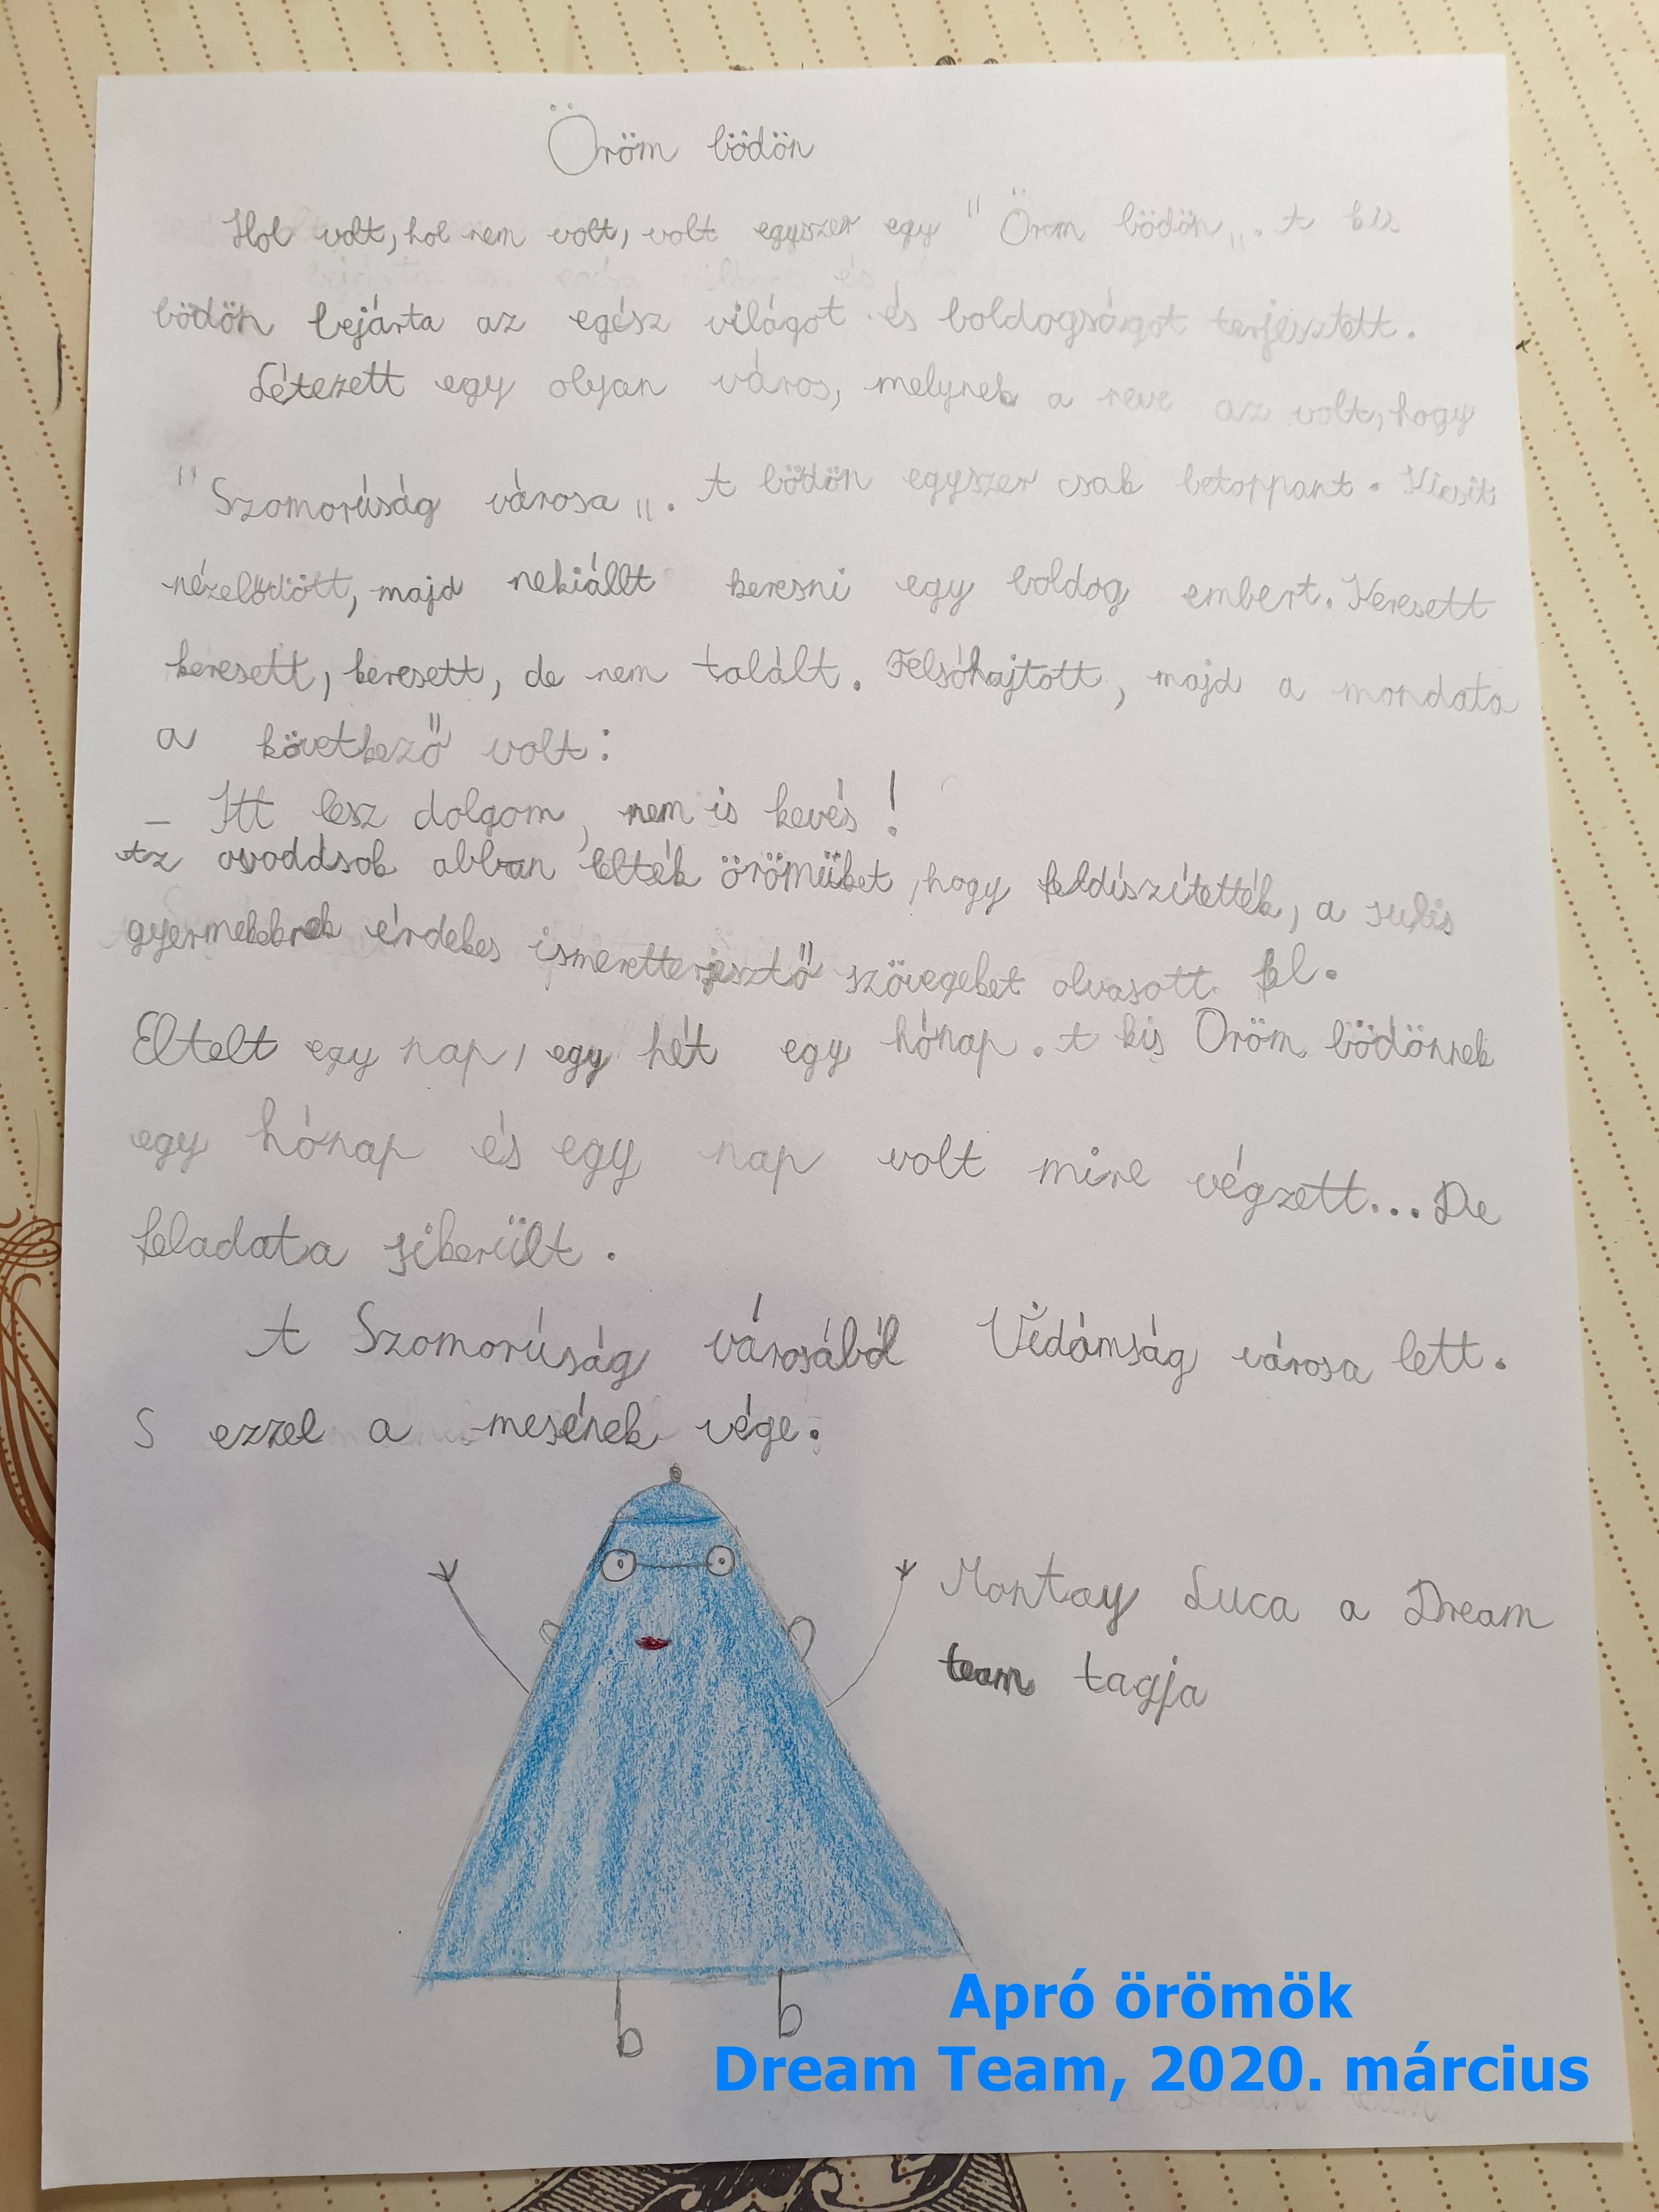 Öröm bödön
Hol volt, hol nem volt, volt egyszer egy "Öröm bödön„. A kis
bödön bejárta az egész világot és boldogságot terjesztett.
Létezett egy olyan város, melynek a neve az volt, hogy
"Szomorúság városa„. A bödön egyszer csak betoppant. Kicsit
nézelődött, majd nekiállt keresni egy boldog embert. Keresett
keresett, keresett, de nem talált. Felsóhajtott, majd a mondata
a következő volt:
– Itt lesz dolgom, nem is kevés!
Az ovoddsok abban lelték örömüket, hogy feldíszítették, a sulis
gyermekeknek érdekes ismeretterjesztő szövegeket olvasott fel.
Eltelt egy nap, egy hét egy hónap. A kis Öröm bödönnek
egy hónap és egy nap volt mire végzett... De
feladata sikerült.
A Szomorúság városából Vidámság városa lett.
S ezzel a mesének vége.
Montay Luca a Dream
team tagja
Apró örömök
Dream Team, 2020. március